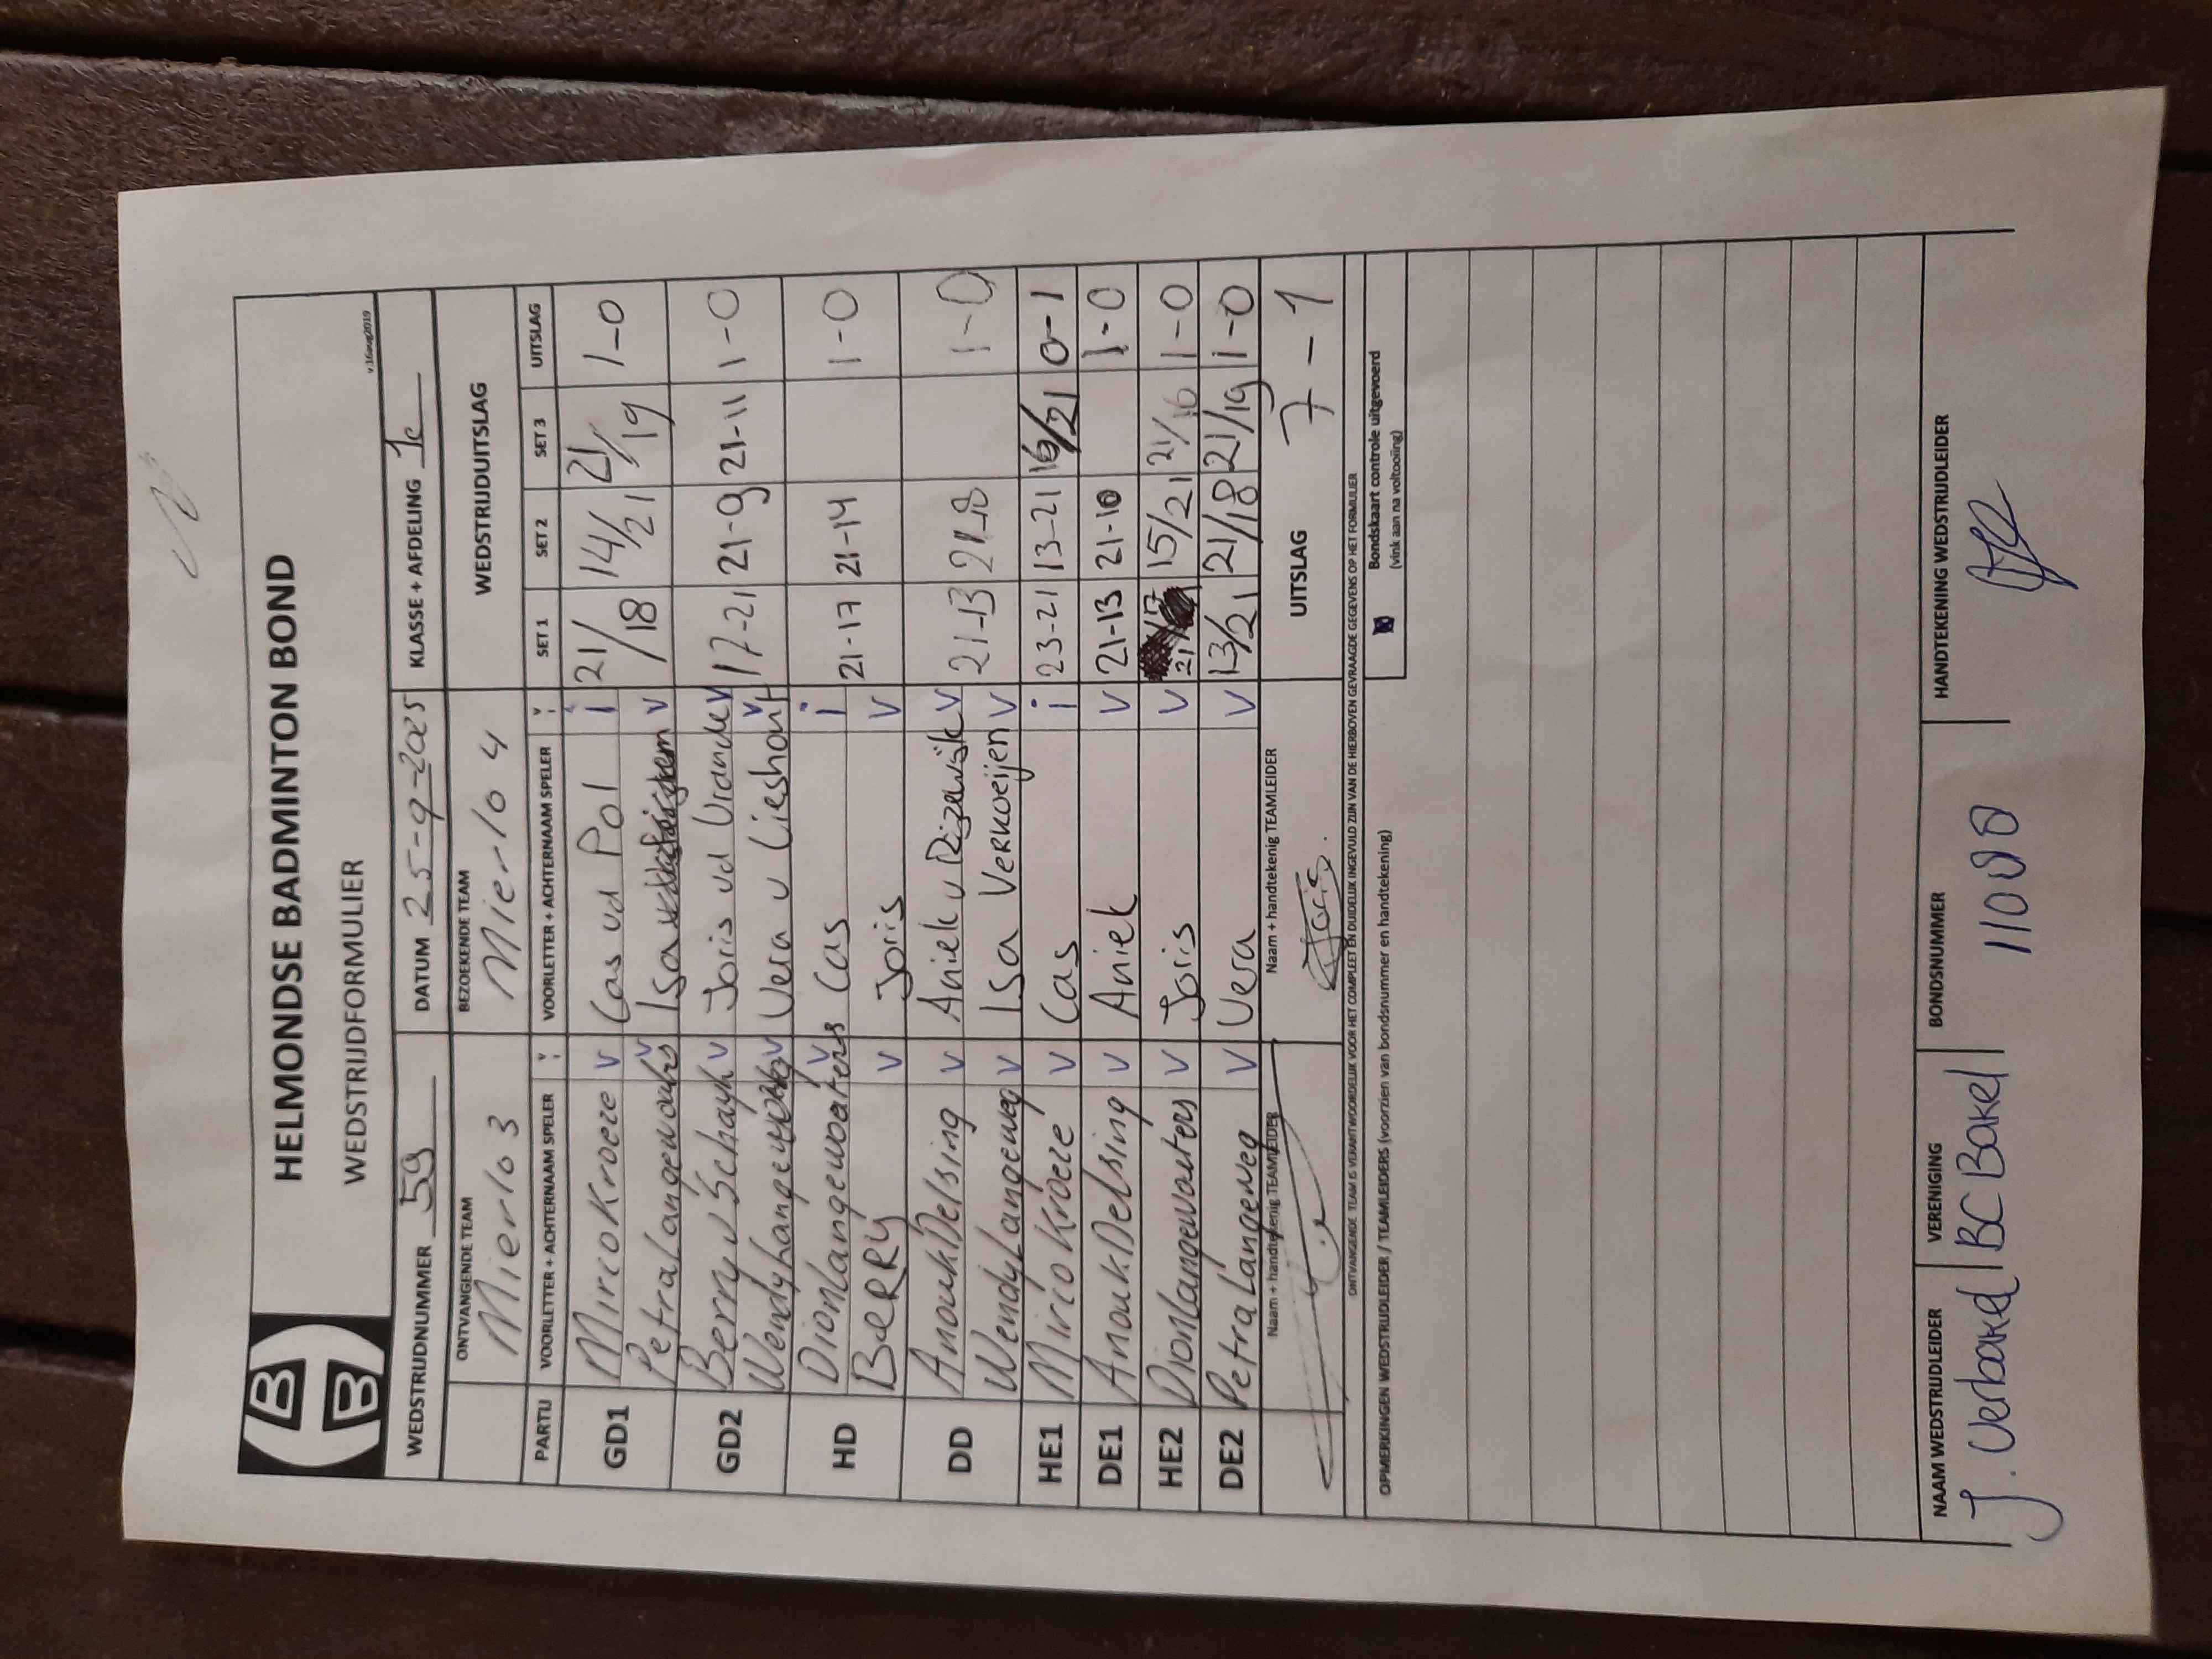 HELMONDSE BADMINTON BOND
WEDSTRIJDFORMULIER
v.16aug2019
WEDSTRIJDNUMMER 59 DATUM 25-9-2025 KLASSE + AFDELING 1e
ONTVANGENDE TEAM BEZOEKENDE TEAM WEDSTRIJDUITSLAG
Mierlo 3 Mierlo 4
PARTIJ VOORLETTER + ACHTERNAAM SPELER VOORLETTER + ACHTERNAAM SPELER SET 1 SET 2 SET 3 UITSLAG
GD1 Mirco Kroeze v Cas vd Pol i 21/18 14/21 21/19 1-0
Petra Langewouters v Isa v
GD2 Berry v Schayk v Joris vd Vrande v 17-21 21-9 21-11 1-0
Wendy Langeweg v Vera v Lieshout v
HD Dion Langewouters v Cas i 21-17 21-14 1-0
BERRY v Joris v
DD Anouk Delsing v Aniek v Rijzewijk v 21-13 21-8 1-0
Wendy Langeweg v Isa Verkoeijen v
HE1 Mirco Kroeze v Cas i 23-21 13-21 16/21 0-1
DE1 Anouk Delsing v Aniek v 21-13 21-10 1-0
HE2 Dion Langewouters v Joris v 21/17 15/21 21/16 1-0
DE2 Petra Langeweg v Vera v 13/21 21/18 21/19 1-0
Naam + handtekenig TEAMLEIDER Naam + handtekenig TEAMLEIDER UITSLAG 7-1
Joris
ONTVANGENDE TEAM IS VERANTWOORDELIJK VOOR HET COMPLEET EN DUIDELIJK INGEVULD ZIJN VAN DE HIERBOVEN GEVRAAGDE GEGEVENS OP HET FORMULIER
OPMERKINGEN WEDSTRIJDLEIDER / TEAMLEIDERS (voorzien van bondsnummer en handtekening)
Bondskaart controle uitgevoerd
(vink aan na voltooiing)
NAAM WEDSTRIJDLEIDER VERENIGING BONDSNUMMER HANDTEKENING WEDSTRIJDLEIDER
J. Verbakel BC Bakel 11000